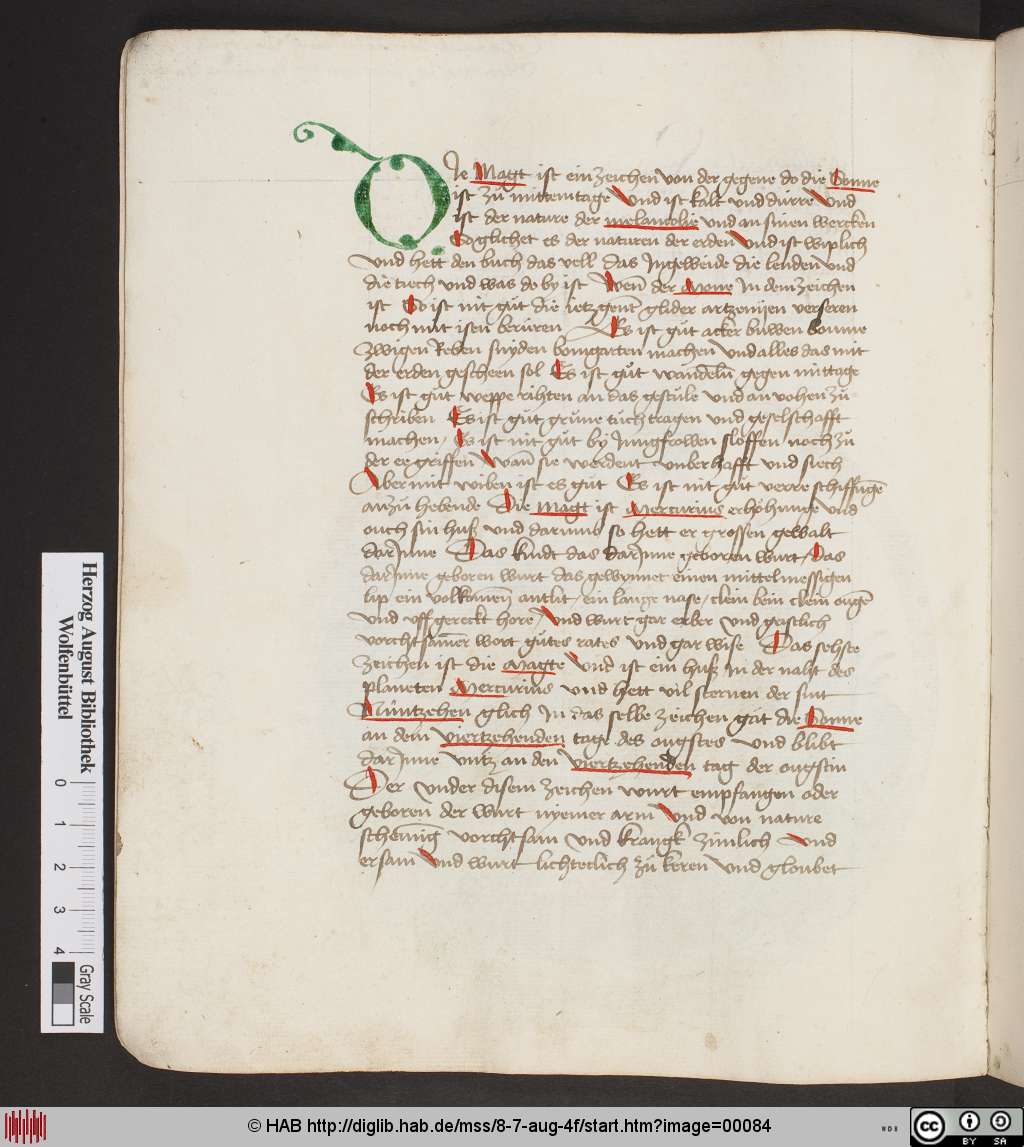 DIe Magt ist ein zeichen von der gegene do die Sonne
ist zů mittemtage Vnd ist kalt vnd dúrre Vnd
ist der nature der melancolie vnd an sinen wercken
So glichet es der naturen der erden Vnd ist wiplich
vnd hett den buch das vell das Ingeweide die lenden vnd
die tiech vnd was do by ist Wen̄ der Mone In dem zeichen
ist So ist nit gůt die ietzgen̄t glider artzenijen verseren
noch mit isen berüren Es ist gůt acker buwen boume
zwigen Reben snyden bomgarten machen vnd alles das mit
der erden gescheen sol Es ist gůt wandeln̄ gegen mittage
Es ist gůt weppe rihten an das gestúle vnd an vohen zů
schriben Es ist gůt grůne tůch tragen vnd geselschafft
machen / Es ist nit gůt by Jungfrowen sloffen noch zů
der ee griffen Wan̄ sie werdent vnberhafft vnd siech
Aber mit wiben ist es gůt Es ist nit gůt verre schiffūge
an zů hebende Die Magt ist Mercurius erhöhunge vnd
ouch sin huß vnd darumb so hett er grossen gewalt
dar Inne Das kindt das dar Inne geboren wurt / Das
dar Inne geboren wurt das gewynnet einen mittelmessigen
lip ein volkomen antlit / ein lange nase / clein bein clein ougē
vnd vff gereckt hore / Vnd wurt gar erber vnd geistlich
vorchtsamer wort gůtes rates vnd gar wise Das sehste
zeichen ist die Magte Vnd ist ein huß In der naht des
planeten Mercurius vnd hett vil sternen der sint
Núntzehen glich In das selbe zeichen gat die Sonne
an dem viertzehenden tage des ougstes vnd blibt
dar Inne vntz an den viertzehenden tag der ougstin
Der vnder disem zeichen wurt empfangen oder
geboren der wurt nyemer arm Vnd von nature
schemig vorchtsam vnd krangk zimlich Vnd
ersam Vnd wurt lichteclich zů keren vnd gloubet
Herzog August Bibliothek
Wolfenbüttel
0 1 2 3 4
Gray Scale
© HAB http://diglib.hab.de/mss/8-7-aug-4f/start.htm?image=00084
WDB
cc BY SA